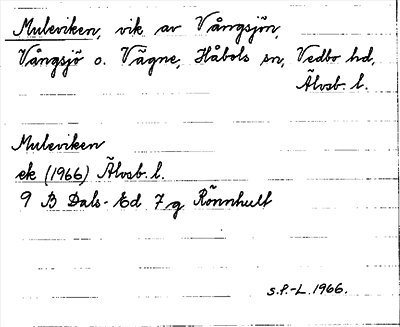 Muleviken, vik av Vångsjön,
Vångsjö o. Vägne, Håbols sn, Vedbo hd,
Älvsb. l.
Muleviken
ek (1966) Älvsb. l.
9 B Dals-Ed 7g Rönnhult
S.P.-L. 1966.